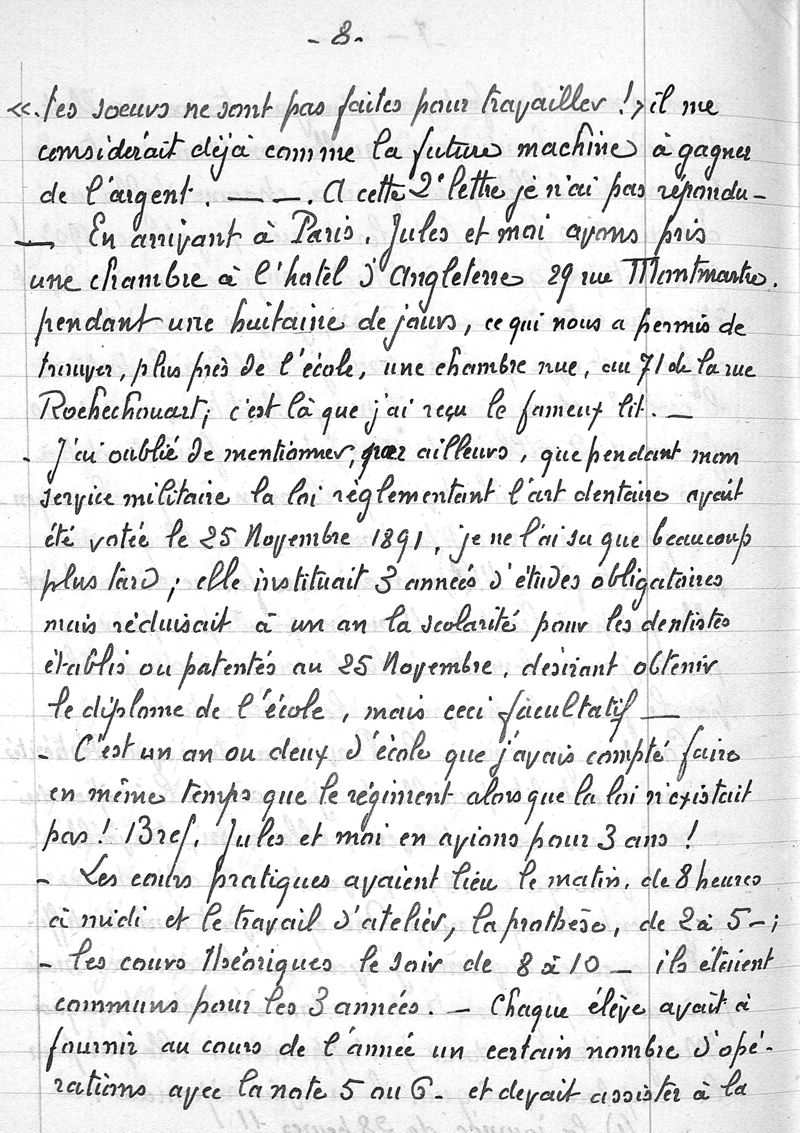 - 8 -
«. tes soeurs ne sont pas faites pour travailler !» il me
considérait déjà comme la future machine à gagner
de l'argent. — —. A cette 2e lettre je n'ai pas répondu -
— En arrivant à Paris, Jules et moi avons pris
une chambre à l'hotel d'Angleterre 29 rue Montmartre.
pendant une huitaine de jours, ce qui nous a permis de
trouver, plus près de l'école, une chambre nue, au 71 de la rue
Rochechouart; c'est là que j'ai reçu le fameux lit. —
- J'ai oublié de mentionner, par ailleurs, que pendant mon
service militaire la loi règlementant l'art dentaire avait
été votée le 25 Novembre 1891, je ne l'ai su que beaucoup
plus tard; elle instituait 3 années d'études obligatoires
mais réduisait à un an la scolarité pour les dentistes
établis ou patentés au 25 Novembre, désirant obtenir
le diplome de l'école, mais ceci facultatif —
- C'est un an ou deux d'école que j'avais compté faire
en même temps que le régiment alors que la loi n'existait
pas! Bref, Jules et moi en avions pour 3 ans!
- Les cours pratiques avaient lieu le matin, de 8 heures
à midi et le travail d'atelier, la prothèse, de 2 à 5 -;
- les cours théoriques le soir de 8 à 10 — ils étaient
communs pour les 3 années. — Chaque élève avait à
fournir au cours de l'année un certain nombre d'opé-
rations avec la note 5 ou 6 - et devait assister à la